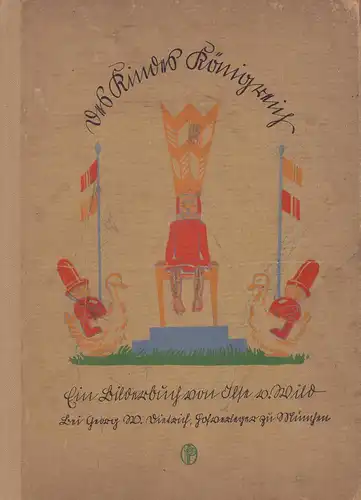 Des Kindes Königreich
Ein Bilderbuch von Ilse v. Wild
Bei Georg W. Dietrich, Hofverleger zu München